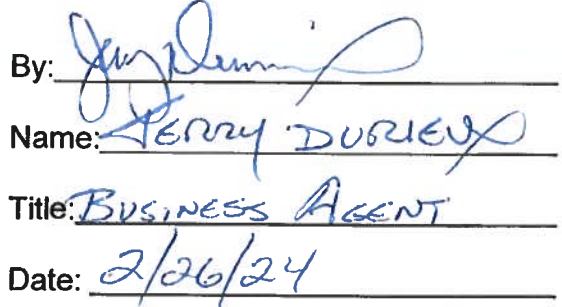 By:
Name: JERRY DURIEUX
Title: BUSINESS AGENT
Date: 2/26/24